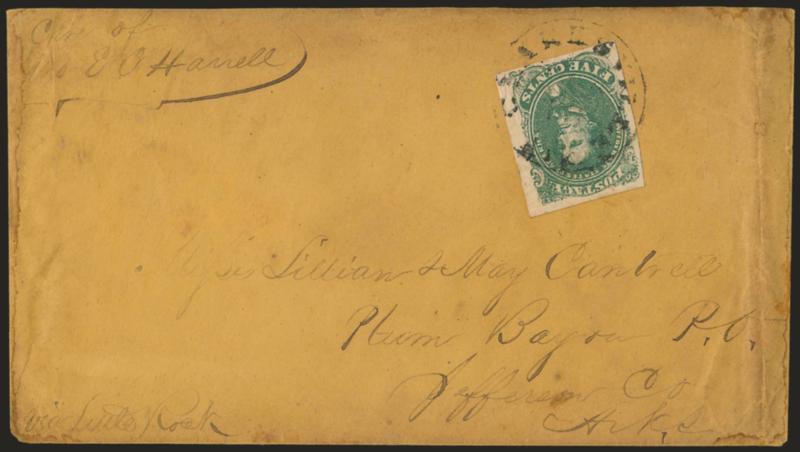 Care of
Geo E O Harrell
FIVE CENTS
POSTAGE
Misses Lillian & May Cantrell
Plum Bayou P.O.
Jefferson Co
Arks
via Little Rock